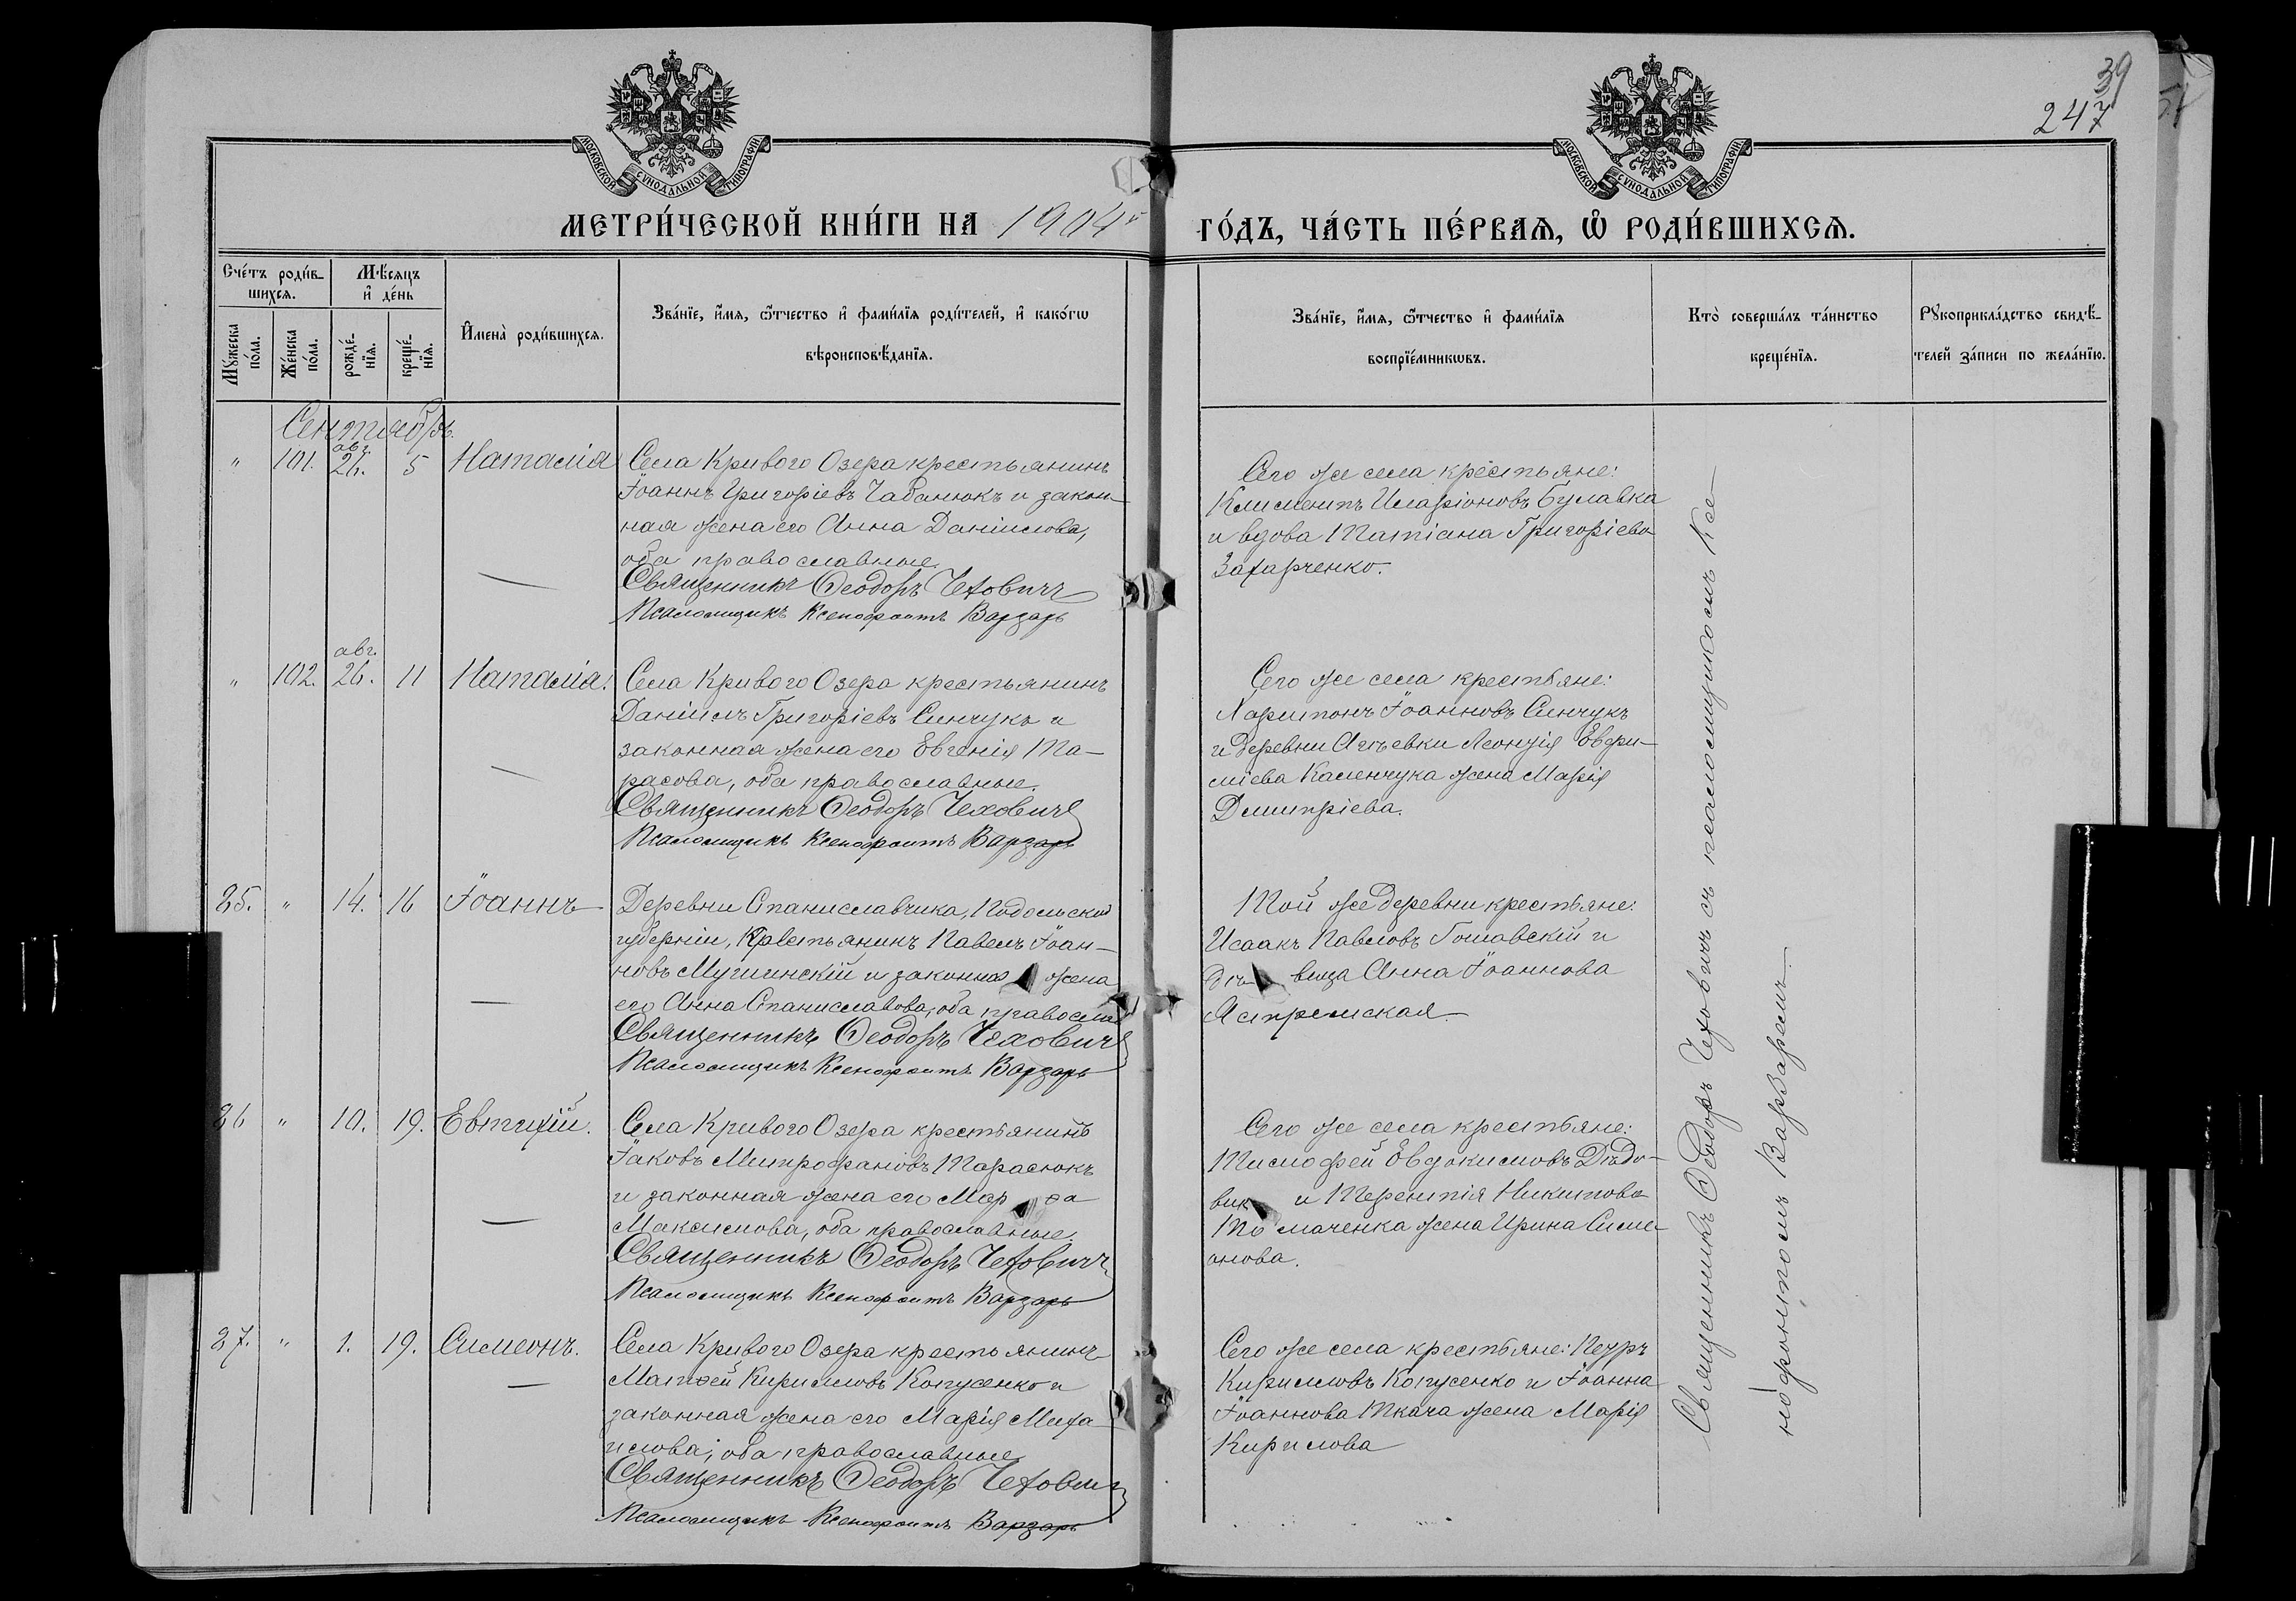 39
247
МОСКОВСКОЙ СУНОДАЛЬНОЙ ТИПОГРАФІИ
МОСКОВСКОЙ СУНОДАЛЬНОЙ ТИПОГРАФІИ
МЕТРИ́ЧЕСКОЙ КНИ́ГИ НА 1904й
ГО́ДЪ, ЧА́СТЬ ПЕ́РВАѦ, Ѡ҆ РОДИ́ВШИХСѦ.
Сче́тъ роди́в-
шихсѧ.
Мѣ́сѧцъ
и҆ де́нь
Мꙋ́жеска
по́ла.
Же́нска
по́ла.
рожде́-
нїѧ.
креще́-
нїѧ.
И҆мена̀ роди́вшихсѧ.
Зва́нїе, и҆́мѧ, ѻ҆́тчество и҆ фами́лїѧ роди́телей, и҆ како́гѡ
вѣроисповѣ́данїѧ.
Зва́нїе, и҆́мѧ, ѻ҆́тчество и҆ фами́лїѧ
воспрїе́мникѡвъ.
Кто̀ соверша́лъ та́инство
креще́нїѧ.
Рꙋкоприкла́дство свидѣ́-
телей за́писи по жела́нїю.
Сентябрь.
" 101. авг. 26. 5 Наталія
Села Криваго Озера крестьянинъ
Іоаннъ Григоріевъ Чабанюкъ и закон-
ная жена его Анна Даніилова,
оба православные.
Священникъ Ѳеодоръ Чеховичъ
Псаломщикъ Ксенофонтъ Варзарь
Сего же села крестьяне:
Климентъ Иларіоновъ Булавка
и вдова Татіана Григоріева
Захарченко.
" 102. авг. 26. 11 Наталія.
Села Кривого Озера крестьянинъ
Даніилъ Григоріевъ Синчукъ и
законная жена его Евгенія Та-
расова, оба православные.
Священникъ Ѳеодоръ Чеховичъ
Псаломщикъ Ксенофонтъ Варзарь
Сего же села крестьяне:
Харитонъ Іоанновъ Синчукъ
и деревни Леонтія Евфи-
міева Каменчука жена Марія
Димитріева.
85. " 14. 16 Іоаннъ
Деревни Станиславчика, Подольской
губерніи, крестьянинъ Павелъ Іоан-
новъ и законная жена
его Анна Станиславова, оба правосла
Священникъ Ѳеодоръ Чеховичъ
Псаломщикъ Ксенофонтъ Варзарь
Той же деревни крестьяне:
Исаакъ Павловъ и
дѣвица Анна Іоаннова
Ястремская
86 " 10. 19. Евтихій.
Села Кривого Озера крестьянинъ
Іаковъ Митрофановъ Тарасюкъ
и законная жена его Марѳа
Максимова, оба православные.
Священникъ Ѳеодоръ Чеховичъ
Псаломщикъ Ксенофонтъ Варзарь
Сего же села крестьяне:
Тимофей Евдокимовъ Дѣдо-
вик и Терентія Никитова
Толмаченка жена Ирина Симе-
онова.
87. " 1. 19. Симеонъ.
Села Кривого Озера крестьянинъ
Матѳей Кирилловъ Копусенко и
законная жена его Марія Миха
илова; оба православные
Священникъ Ѳеодоръ Чеховичъ
Псаломщикъ Ксенофонтъ Варзарь
Сего же села крестьяне: Петръ
Кирилловъ Копусенко и Іоанна
Іоаннова Ткача жена Марія
Кирилова
Священникъ Ѳеодоръ Чеховичъ съ псаломщикомъ Ксе-
нофонтомъ Варзаремъ